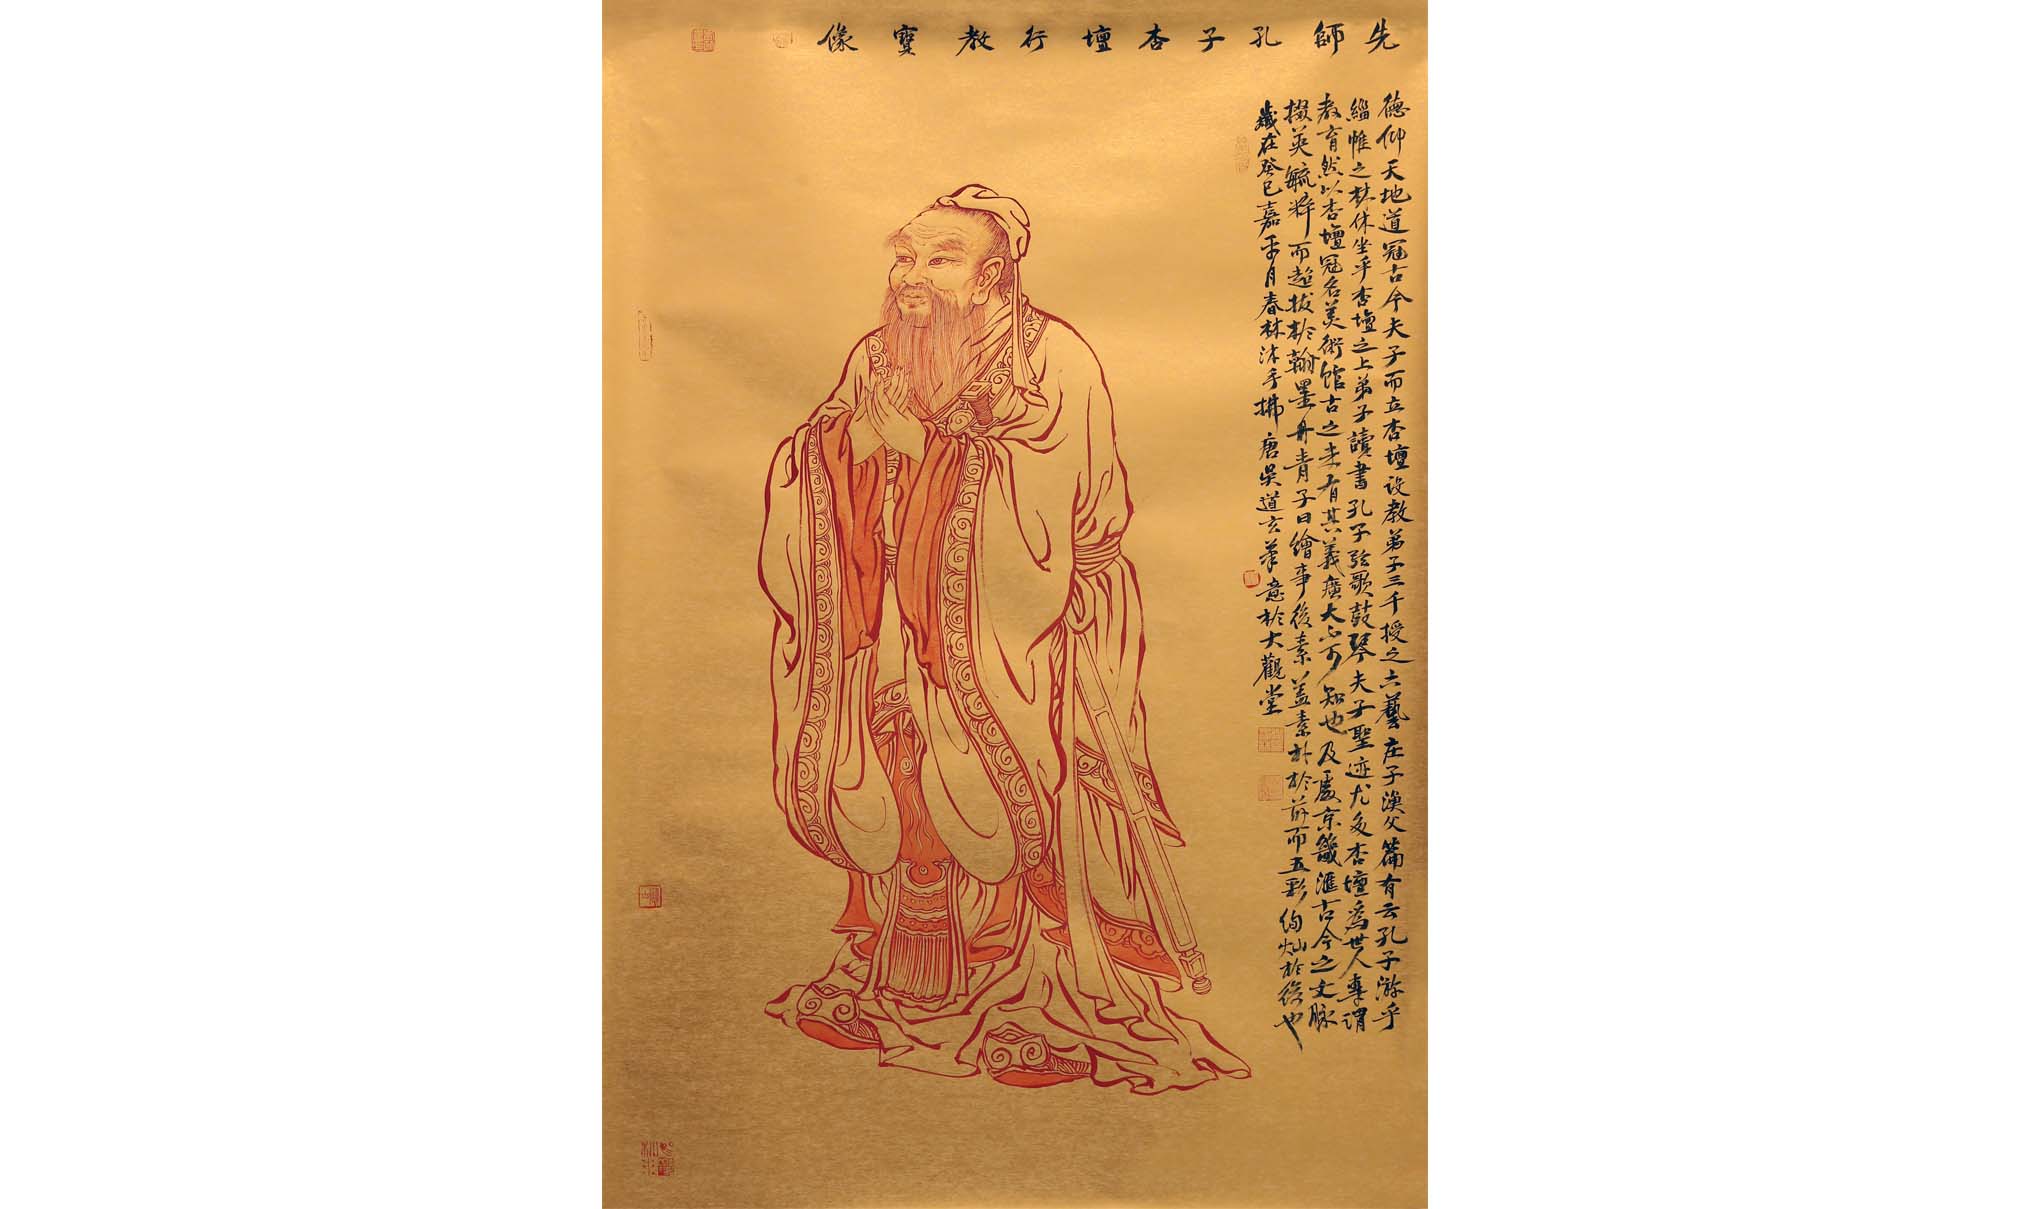 先師孔子杏壇行教寶像
德仰天地道冠古今夫子而立杏壇設教弟子三千授之六藝庄子漁父篇有云孔子游乎
緇帷之林休坐乎杏壇之上弟子讀書孔子弦歌鼓琴夫子聖迹尤多杏壇為世人專謂
教育然以杏壇冠名美術館古之未有其義廣大亦可知也及處京畿滙古今之文脉
掇英毓粹而超拔於翰墨丹青子曰繪事後素盖素朴於前而五彩絢灿於後也
歲在癸巳嘉平月春林沐手擕唐吳道玄筆意於大觀堂